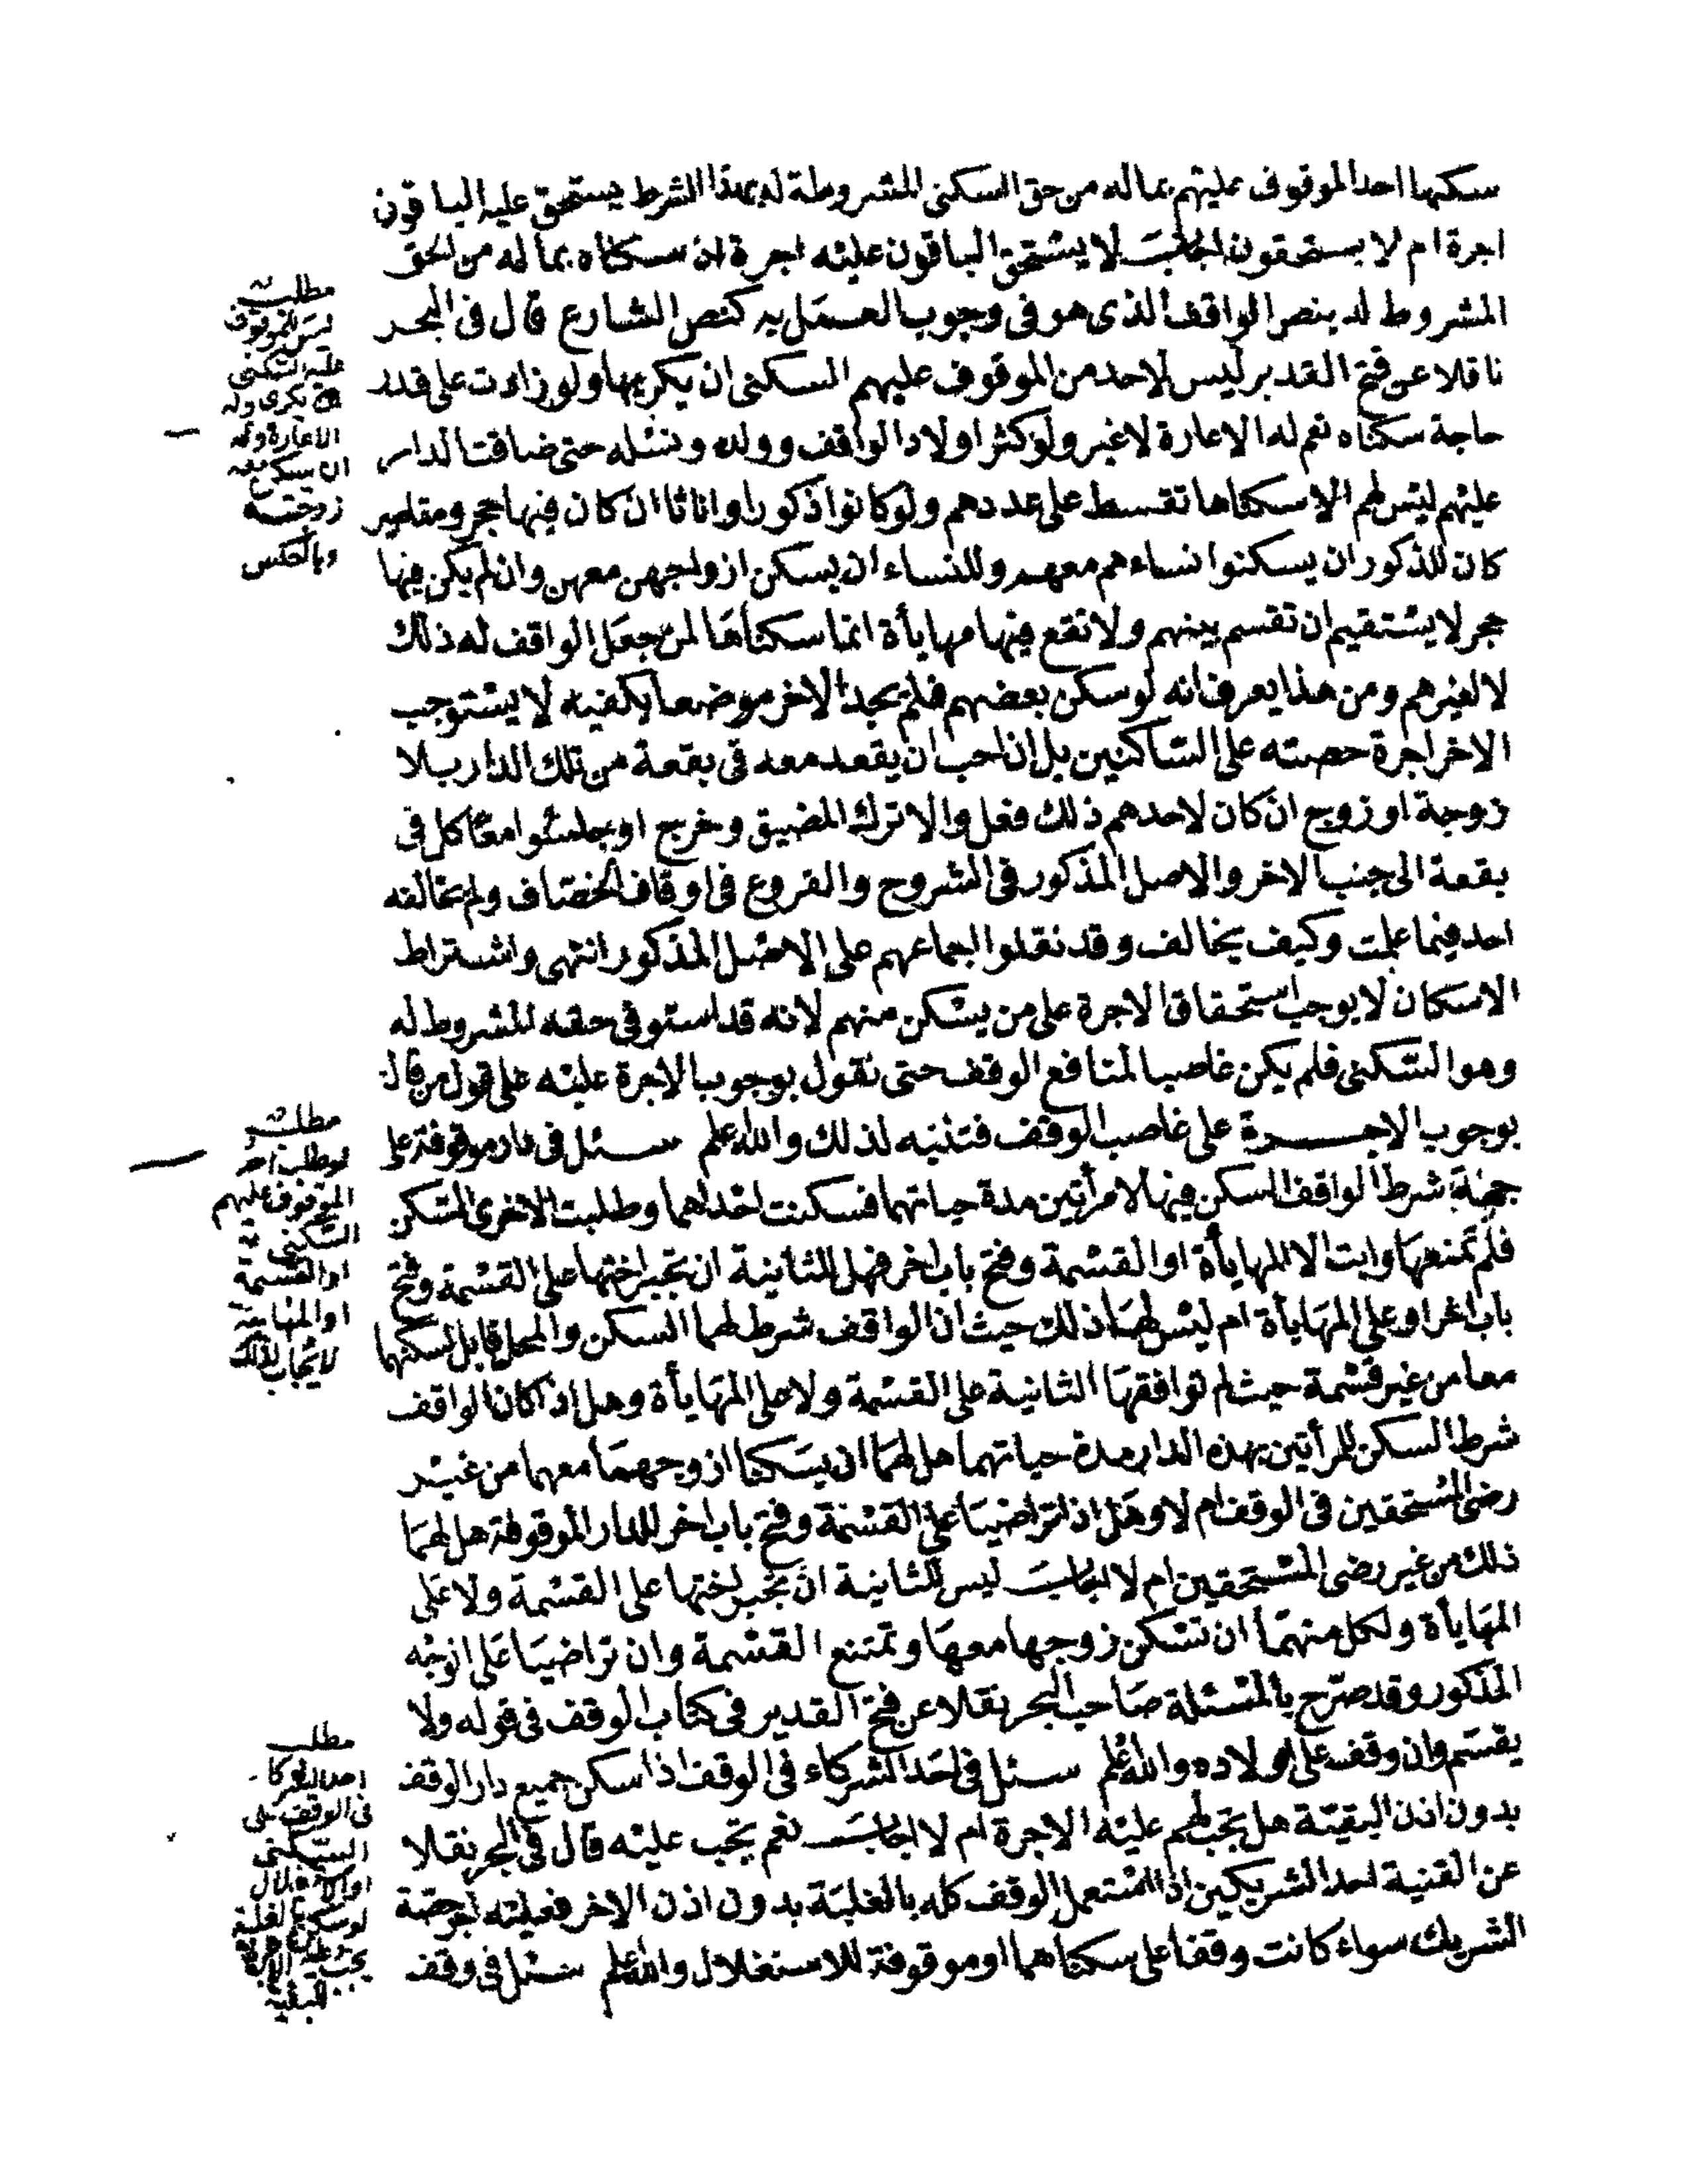 سكنها احد الموقوف عليهم بماله من حق السكنى المشروطة له بهذا الشرط يستحق عليه الباقون
اجرة ام لا يستحقون اجاب لا يستحق الباقون عليه اجرة اذ سكناه بما له من الحق
المشروط له بنص الواقف الذى هو فى وجوب العمل به كنص الشارع قال فى البحر
ناقلا عن فتح القدير ليس لاحد من الموقوف عليهم السكنى ان يكريها ولو زادت على قدر
حاجة سكناه نعم له الاعارة لا غير ولو كثر اولاد الواقف وولده ونسله حتى ضاقت الدار
عليهم ليس لهم الا سكناها تقسط على عددهم ولو كانوا ذكورا واناثا ان كان فيها حجر ومقاصير
كان للذكور ان يسكنوا نساءهم معهم وللنساء ان يسكن ازواجهن معهن وان لم يكن فيها
حجر لا يستقيم ان تقسم بينهم ولا تقع فيها مهايأة انما سكناها لمن جعل الواقف له ذلك
لا لغيرهم ومن هذا يعرف انه لو سكن بعضهم فلم يجد الاخر موضعا يكفيه لا يستوجب
الاخر اجرة حصته على الساكنين بل ان احب ان يقعد معه فى بقعة من تلك الدار بلا
زوجة او زوج ان كان لاحدهم ذلك فعل والا ترك المضيق وخرج او جلسوا معا كل فى
بقعة الى جنب الاخر والاصل المذكور فى الشروح والفروع فى اوقاف الخصاف ولم يخالفه
احد فيما علمت وكيف يخالف وقد نقلوا اجماعهم على الاصل المذكور انتهى واشتراط
الاسكان لا يوجب استحقاق الاجرة على من يسكن منهم لانه قد استوفى حقه المشروط له
وهو السكنى فلم يكن غاصبا لمنافع الوقف حتى نقول بوجوب الاجرة عليه على قول من قال
بوجوب الاجرة على غاصب الوقف فتنبه لذلك والله اعلم سئل فى دار موقوفة على
جهة شرط الواقف السكن فيها لامرأتين مدة حياتهما فسكنت احداهما وطلبت الاخرى السكن
فلم تمنعها وابت الا المهايأة او القسمة وفتح باب اخر فهل للثانية ان تجبر اختها على القسمة وفتح
باب اخر او على المهايأة ام ليس لها ذلك حيث ان الواقف شرط لهما السكن والمحل قابل لسكنهما
معا من غير قسمة حيث لم توافقها الثانية على القسمة ولا على المهايأة وهل اذا كان الواقف
شرط السكن للمرأتين بهذه الدار مدة حياتهما هل لهما ان يسكنا ازوجهما معهما من غير
رضى المستحقين فى الوقف ام لا وهل اذا تراضيا على القسمة وفتح باب اخر للدار الموقوفة هل لهما
ذلك من غير رضى المستحقين ام لا اجاب ليس للثانية ان تجبر اختها على القسمة ولا على
المهايأة ولكل منهما ان تسكن زوجها معها وتمتنع القسمة وان تراضيا على الوجه
المذكور وقد صرح بالمسئلة صاحب البحر نقلا عن فتح القدير فى كتاب الوقف فى قوله ولا
يقسم وان وقف على اولاده والله اعلم سئل فى احد الشركاء فى الوقف اذا سكن جميع دار الوقف
بدون اذن البقية هل يجب لهم عليه الاجرة ام لا اجاب نعم يجب عليه قال فى البحر نقلا
عن القنية احد الشريكين اذا استعمل الوقف كله بالغلبة بدون اذن الاخر فعليه اجر حصة
الشريك سواء كانت وقفا على سكناهما او موقوفة للاستغلال والله اعلم سئل فى وقف
مطلب
ليس للموقوف
عليه السكنى
ان يكرى وله
الاعارة وله
ان يسكن معه
زوجته
وبالعكس
مطلب
لو طلب احد
الموقوف عليهم
السكنى
او القسمة
او المهايئة
لا يجاب لذلك
مطلب
احد الشركاء
فى الوقف على
السكنى
او الاستغلال
لو سكن بالغلبة
يجب عليه الاجرة
للبقية